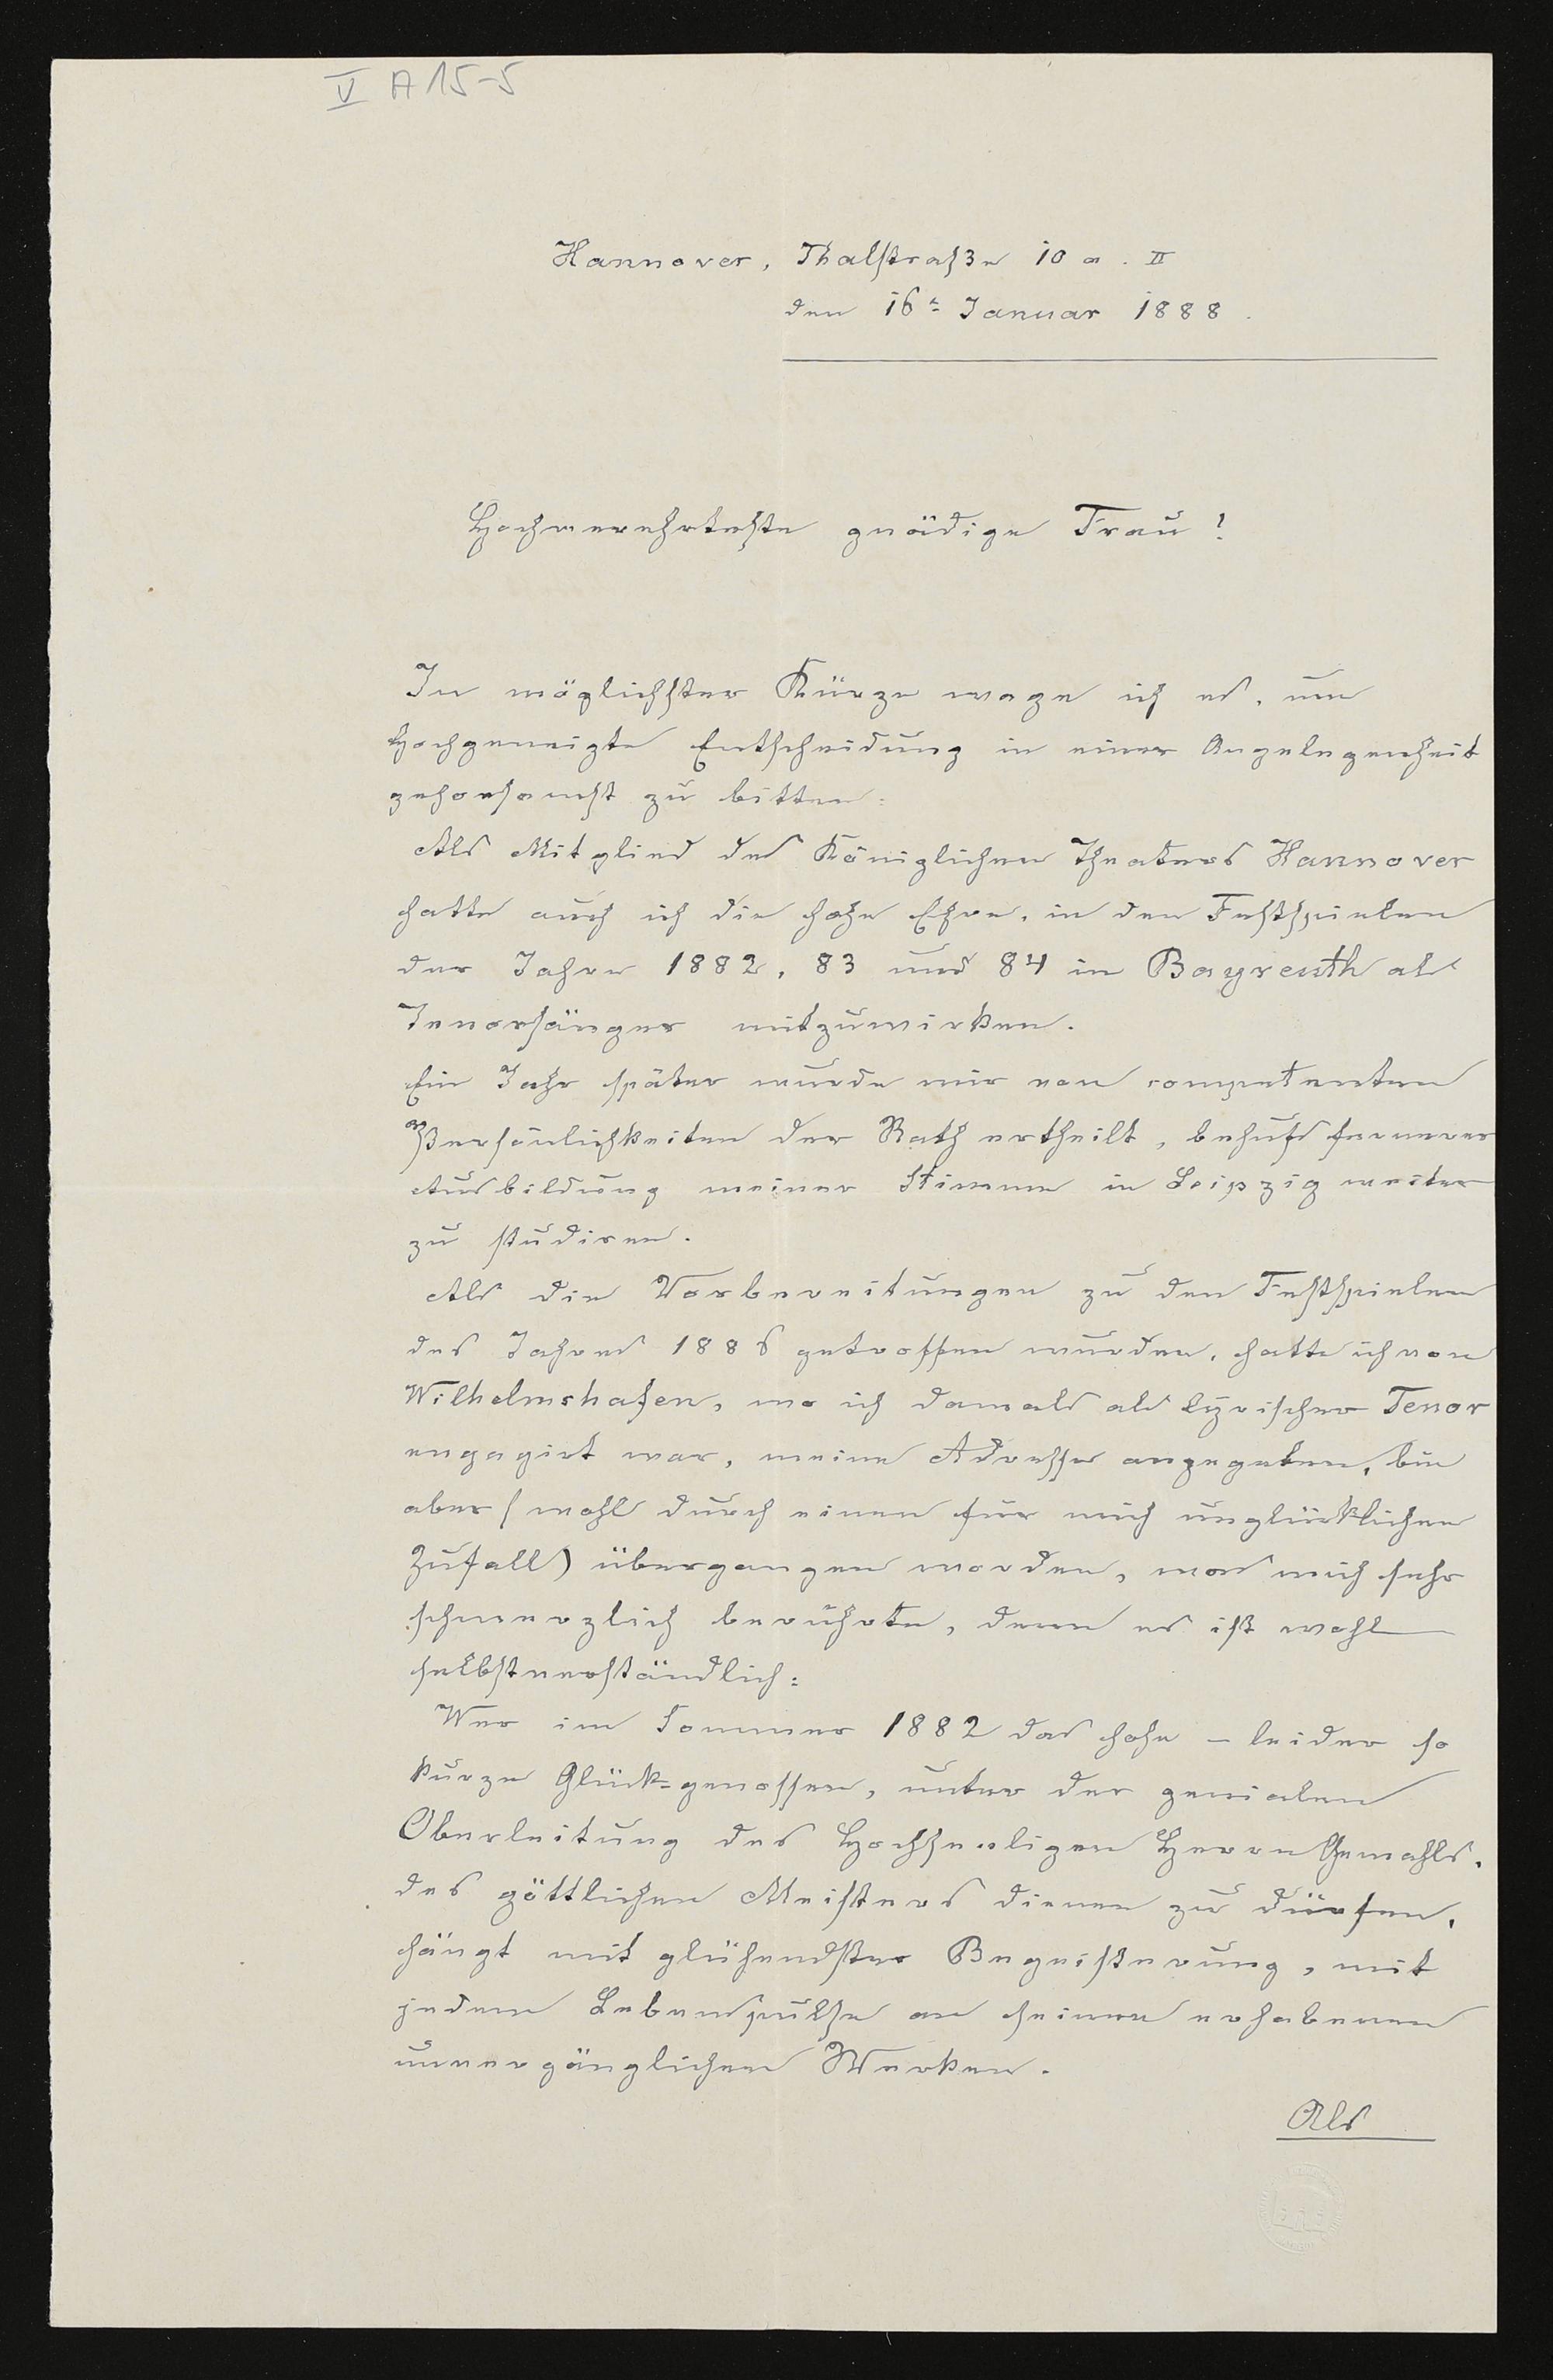 V A 15-5
Hannover, Thalstraße 10 a. II
den 16t Januar 1888.
Hochverehrteste gnädige Frau!
In möglichster Kürze wage ich es, um
hochgeneigte Entscheidung in einer Angelegenheit
gehorsamst zu bitten:
Als Mitglied des Königlichen Theaters Hannover
hatte auch ich die hohe Ehre, in den Festspielen
der Jahre 1882, 83 und 84 in Bayreuth als
Tenorsänger mitzuwirken.
Ein Jahr später wurde mir von competenten
Persönlichkeiten der Rath ertheilt, behufs fernerer
Ausbildung meiner Stimme in Leipzig weiter
zu studiren.
Als die Vorbereitungen zu den Festspielen
des Jahres 1886 getroffen wurden, hatte ich von
Wilhelmshafen, wo ich damals als lyrischer Tenor
engagirt war, meine Adresse angegeben, bin
aber (wohl durch einen für mich unglücklichen
Zufall) übergangen worden, was mich sehr
schmerzlich berührte, denn es ist wohl
selbstverständlich:
Wer im Sommer 1882 das hohe – leider so
kurze Glück=genossen, unter der genialen
Oberleitung des Hochseeligen Herrn Gemahls,
des göttlichen Meisters dienen zu dürfen,
hängt mit glühendster Begeisterung, mit
jedem Lebenspulse an seinen erhabenen
unvergänglichen Werken.
Als